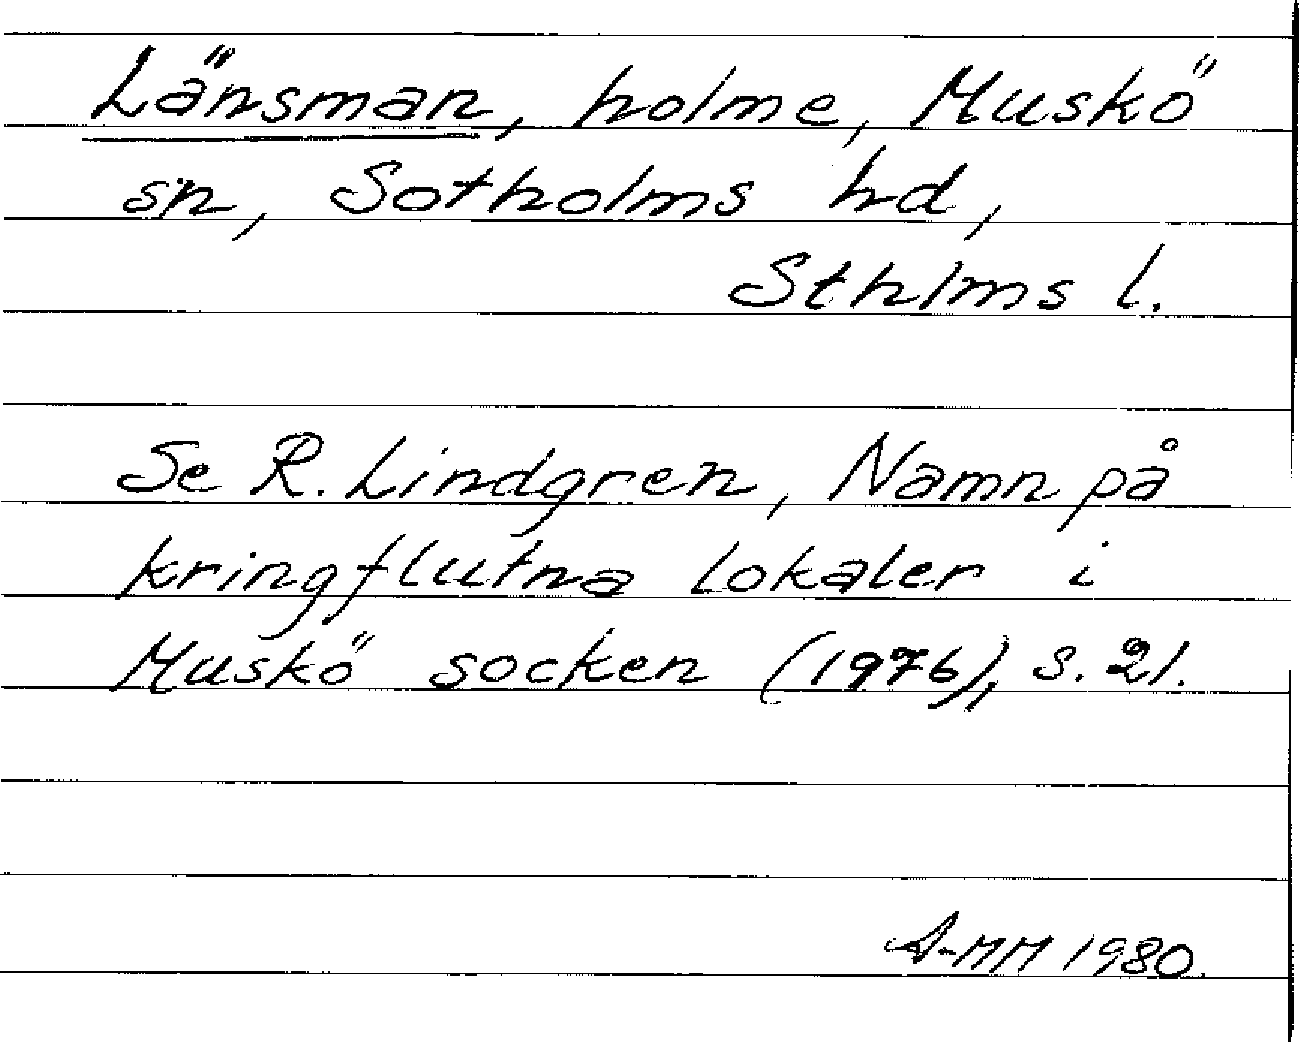 Länsman, holme, Muskö
sn, Sotholms hd,
Sthlms l.
Se R. Lindgren, Namn på
kringflutna lokaler i
Muskö socken (1976), s. 21.
A-MM 1980.